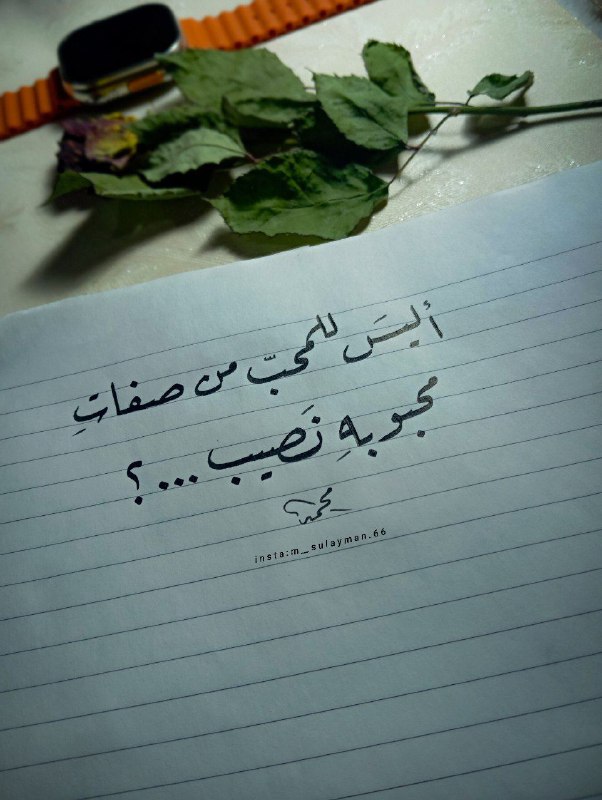 أليسَ للمحبّ من صفاتِ
محبوبهِ نَصيب ...؟
محمد
insta:m_sulayman.66